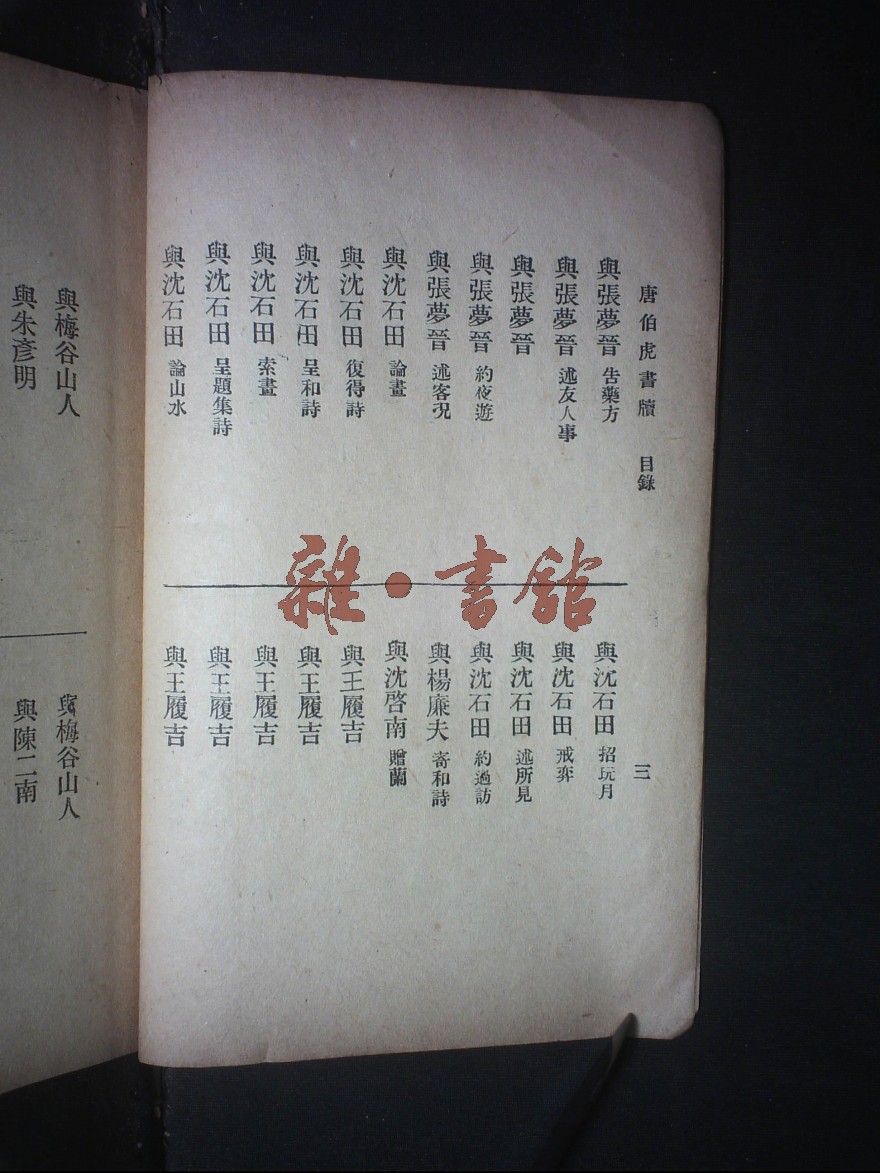 唐伯虎書牘 目錄 三
與張夢晉 告藥方
與張夢晉 述友人事
與張夢晉
與張夢晉 約夜遊
與張夢晉 述客況
與沈石田 論畫
與沈石田 復得詩
與沈石田 呈和詩
與沈石田 索畫
與沈石田 呈題集詩
與沈石田 論山水
與沈石田 招玩月
與沈石田 戒弈
與沈石田 述所見
與沈石田 約過訪
與楊廉夫 寄和詩
與沈啓南 贈蘭
與王履吉
與王履吉
與王履吉
與王履吉
與王履吉
雜·書館
與梅谷山人
與朱彥明
與梅谷山人
與陳二南